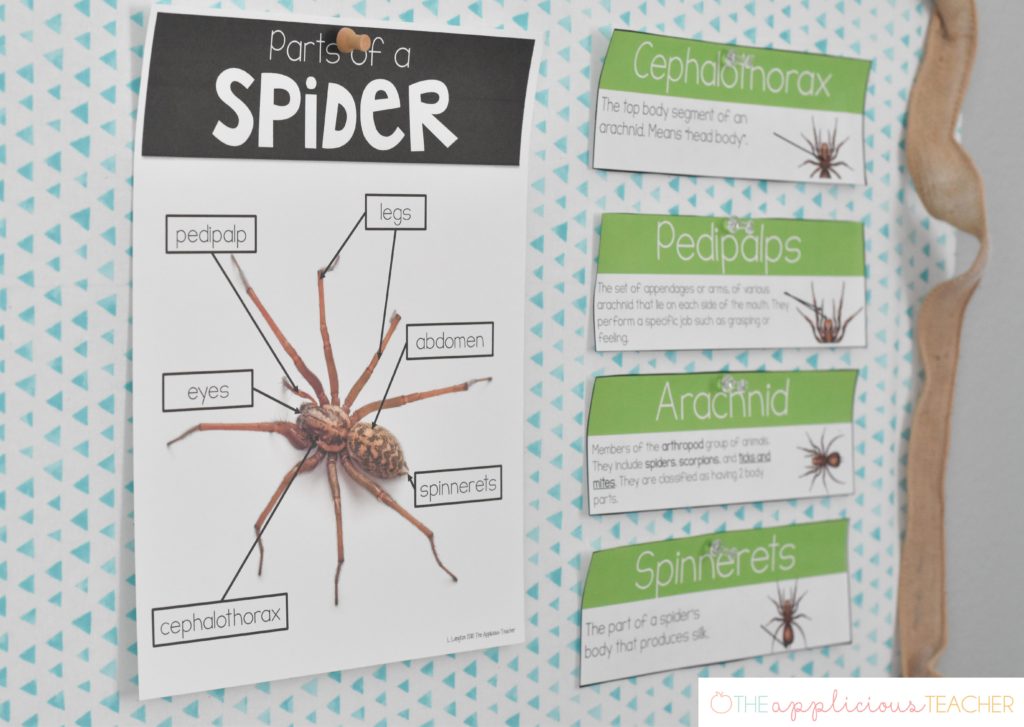 Parts of a
SPIDER
pedipalp
legs
abdomen
eyes
spinnerets
cephalothorax
L. Langton 2016 The Applicious Teacher
Cephalothorax
The top body segment of an
arachnid. Means "head body".
Pedipalps
The set of appendages or arms, of various
arachnid that lie on each side of the mouth. They
perform a specific job such as grasping or
feeling.
Arachnid
Members of the arthropod group of animals.
They include spiders, scorpions, and ticks and
mites. They are classified as having 2 body
parts.
Spinnerets
The part of a spider's
body that produces silk.
THE applicious TEACHER